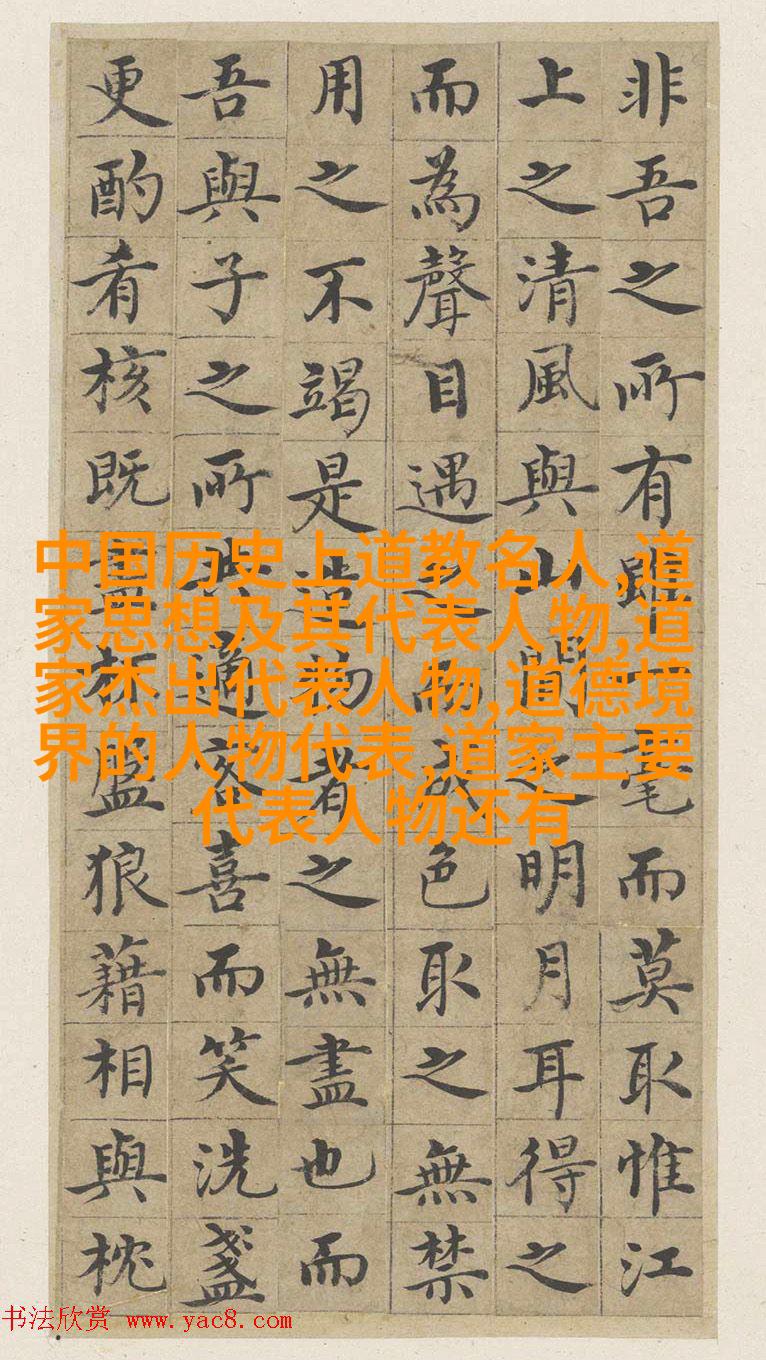 非吾之所有雖一毫而莫取惟江
上之清風與山間之明月耳得之
而為聲目遇之而成色取之無禁
用之不竭是造物者之無盡也而
吾與子之所共適客喜而笑洗盞
更酌肴核既盡杯盤狼藉相與枕
中国历史上道教名人,道
家思想及其代表人物,道
家杰出代表人物,道德境
界的人物代表,道家主要
代表人物还有
书法欣赏 www.yac8.com